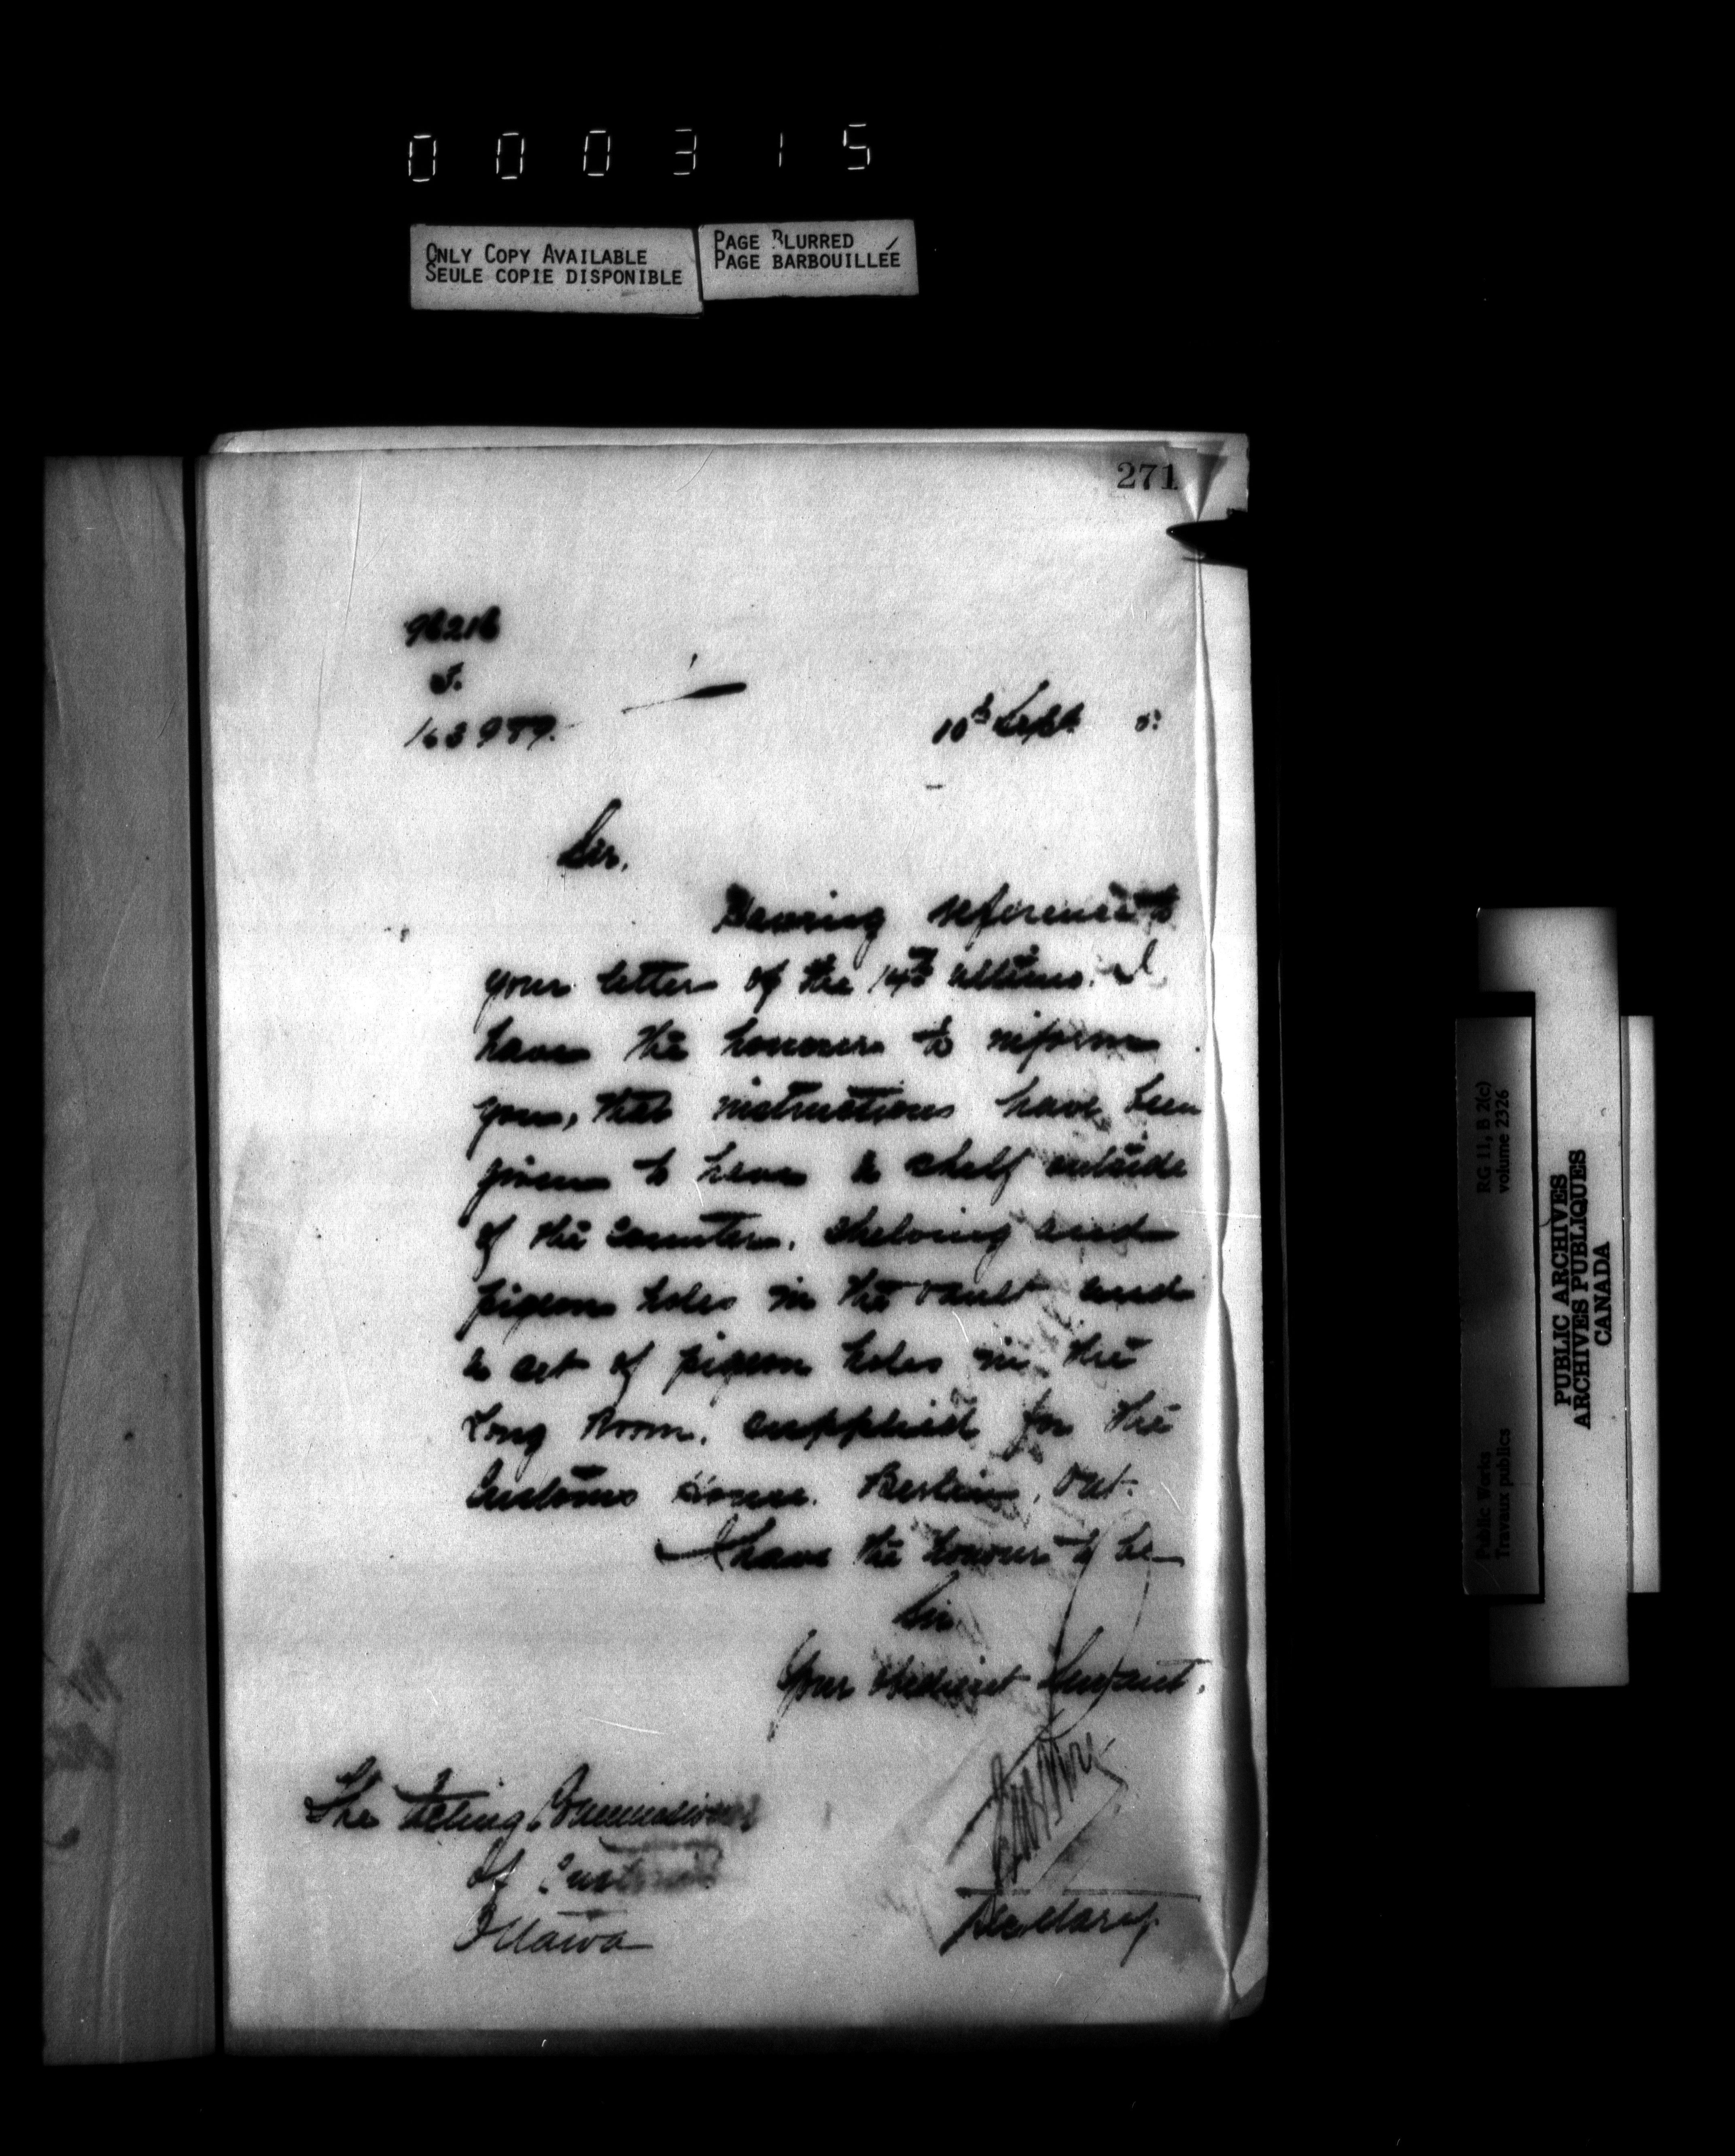 000315
ONLY COPY AVAILABLE
SEULE COPIE DISPONIBLE
PAGE BLURRED
PAGE BARBOUILLÉE
271
96216
J.
163979.
10th Sept. 5.
Sir,
Having reference to
your letter of the 14th ultimo. I
have the honour to inform
you, that instructions have been
given to have a shelf outside
of the Counter. Shelving and
pigeon holes in the vault and
a set of pigeon holes in the
Long Room. supplied for the
Customs House. Berlin, Ont.
I have the honour to be
Sir
Your obedient Servant.
Secretary.
The Acting Commissioner
of Customs
Ottawa
RG 11, B 2(c)
volume 2326
Public Works
Travaux publics
PUBLIC ARCHIVES
ARCHIVES PUBLIQUES
CANADA